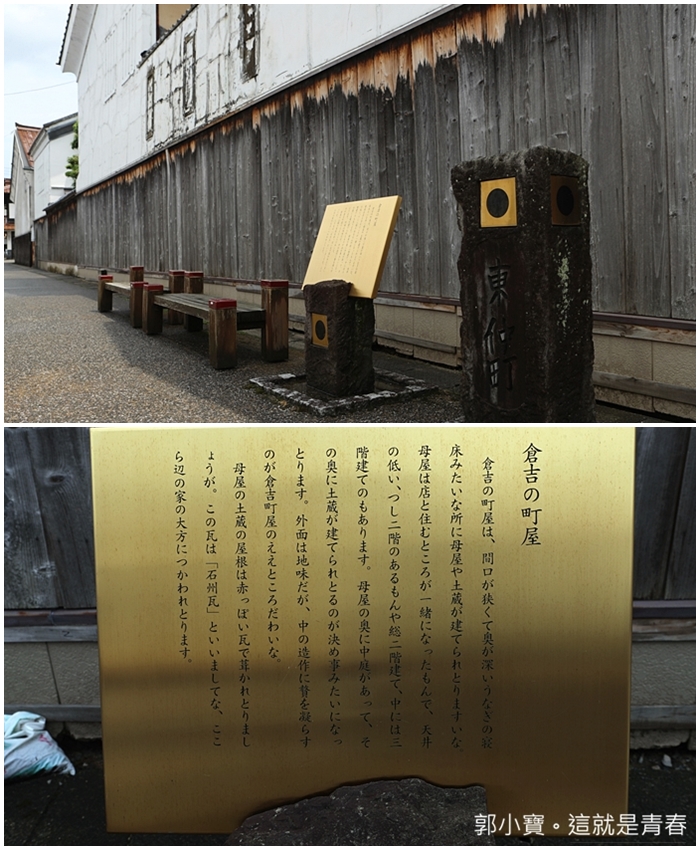 東仙町
倉吉の町屋
倉吉の町屋は、間口が狭くて奥が深いうなぎの寝
床みたいな所に母屋や土蔵が建てられとりますいな。
母屋は店と住むところが一緒になったもんで、天井
の低い、つし二階のあるもんや総二階建て、中には三
階建てのもあります。母屋の奥に中庭があって、そ
の奥に土蔵が建てられとるのが決め事みたいになっ
とります。外面は地味だが、中の造作に贅を凝らす
のが倉吉町屋のええところだわいな。
母屋の土蔵の屋根は赤っぽい瓦で葺かれとりまし
ょうが。この瓦は「石州瓦」といいましてな、ここ
ら辺の家の大方につかわれとります。
郭小寶。這就是青春